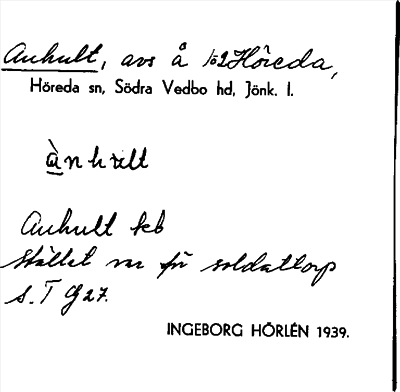 Anhult, avs å 1/2 Höreda,
Höreda sn, Södra Vedbo hd, Jönk. l.
ànhult
Anhult kb
Stället var för soldattorp
s. T G 27.
INGEBORG HÖRLÉN 1939.